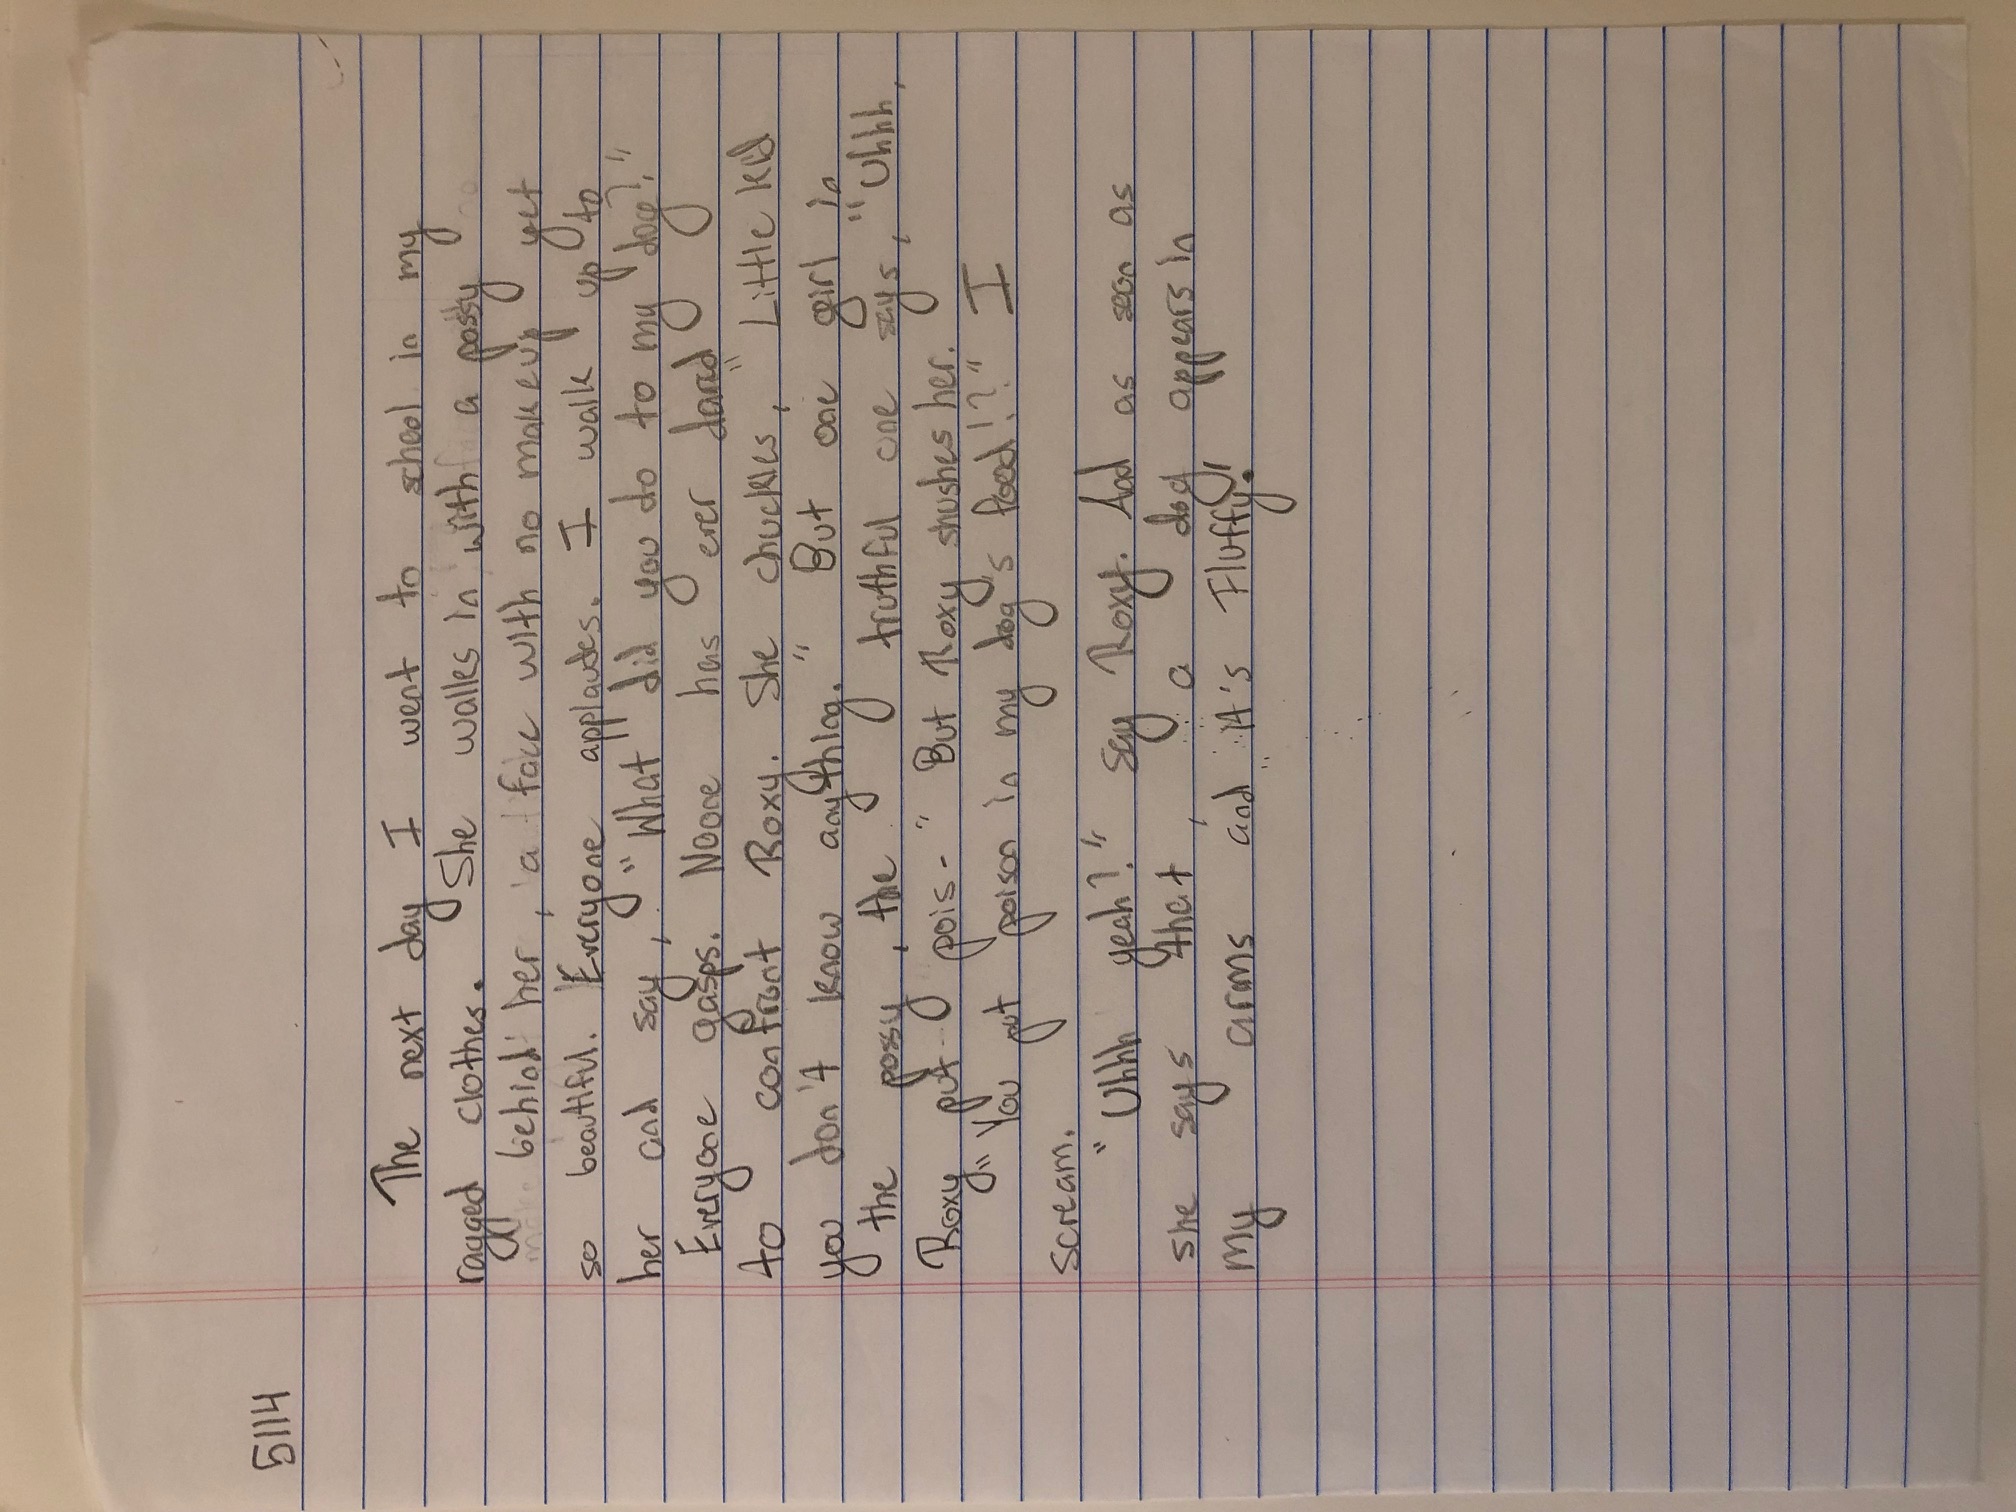 5114
The next day I went to school in my
ragged clothes. She walks in with a possy
behind her, a face with no makeup yet
so beautiful. Everyone applaudes. I walk up to
her and say, "What did you do to my dog?"
Everyone gasps. Noone has ever dared
to confront Roxy. She chuckles, "Little kid
you don't know anything." But one girl in
the possy, the truthful one says, "Uhhh,
Roxy put pois-" But Roxy shushes her.
"You put poison in my dog's food!?" I
scream.
"Uhhh yeah?" say Roxy. And as soon as
she says that, a dog appears in
my arms and it's Fluffy!